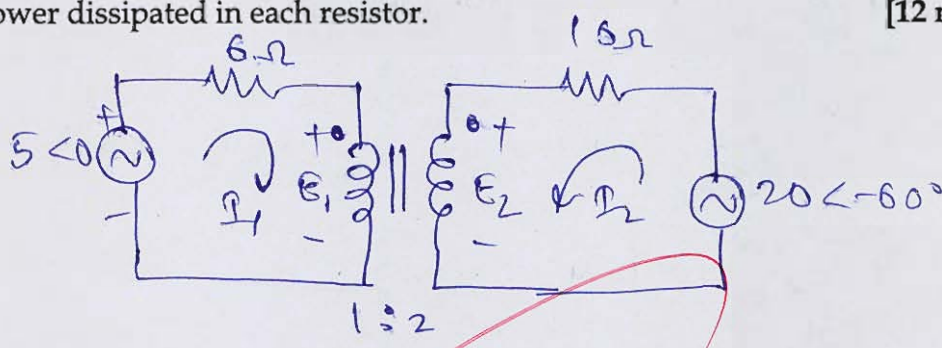 ower dissipated in each resistor. [12 r
6Ω
16Ω
+
5<0
+
+
20<-60°
I₁
E₁
E₂
I₂
-
-
-
1:2